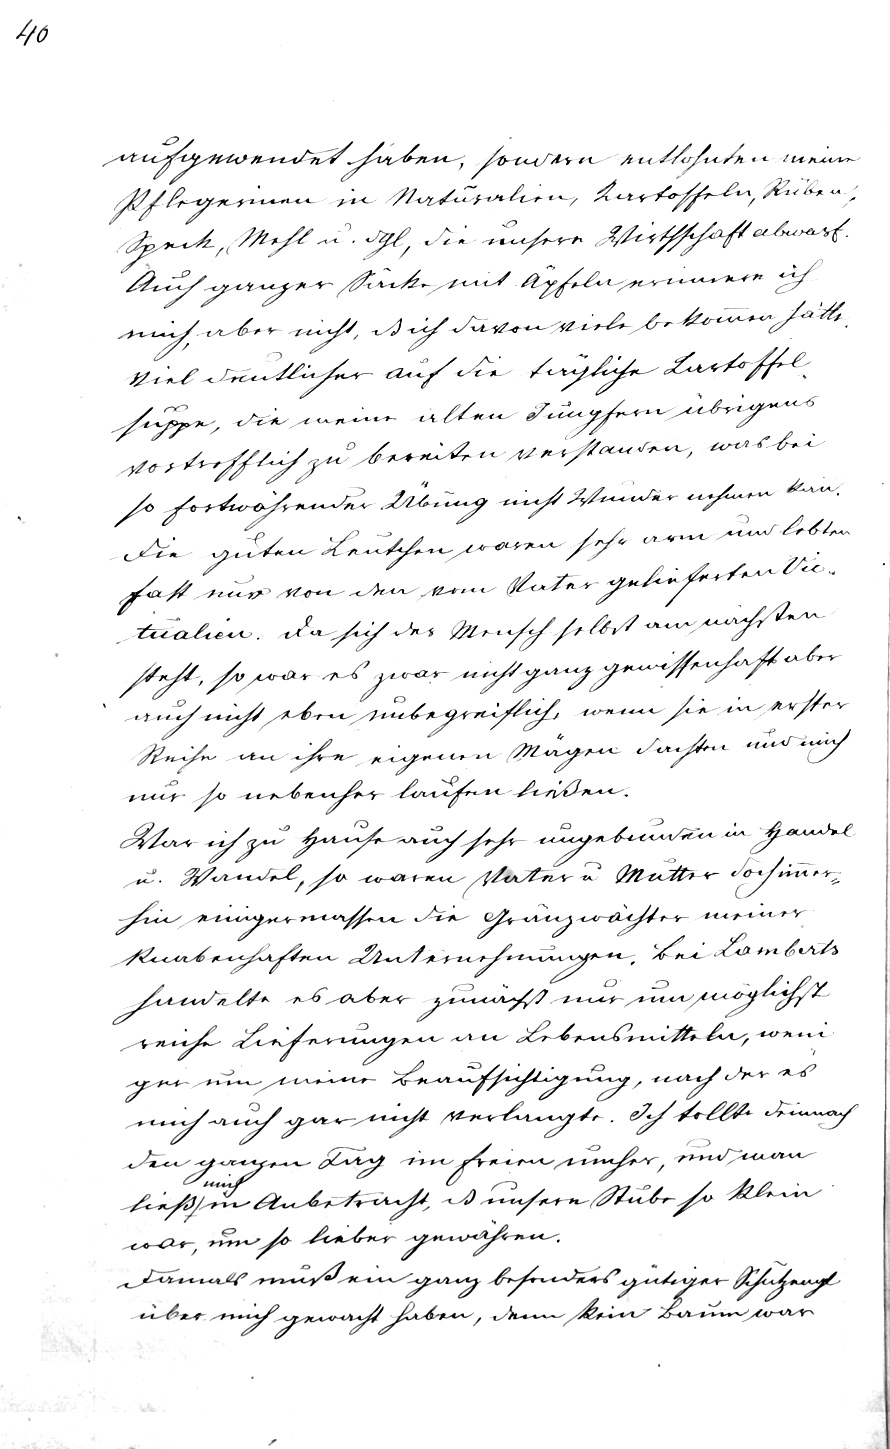 40
aufgewendet haben, sondern entlohnten meine
Pflegerinen in Naturalien, Kartoffeln, Rüben,
Speck, Mehl u. dgl, die unsere Wirthschaft abwarf.
Auch ganzer Säcke mit Äpfeln erinnere ich
mich, aber nicht, dß ich davon viele bekom̅en hätte,
viel deutlicher auf die tägliche Kartoffel-
suppe, die meine alten Jungfern übrigens
vortrefflich zu bereiten verstanden, was bei
so fortwährender Übung nicht Wunder nehmen kan̅.
Die guten Leutchen waren sehr arm und lebten
fast nur von den vom Vater gelieferten Vic-
tualien. Da sich der Mensch selbst am nächsten
steht, so war es zwar nicht ganz gewissenhaft aber
auch nicht eben unbegreiflich, wenn sie in erster
Reihe an ihre eigenen Mägen dachten und mich
nur so nebenher laufen ließen.
War ich zu Hause auch sehr ungebunden in Handel
u. Wandel, so waren Vater u Mutter doch im̅er-
hin einigermassen die Gränzwächter meiner
knabenhaften Unternehmungen. Bei Lamberts
handelte es aber zunächst nur um möglichst
reiche Lieferungen an Lebensmitteln, weni
ger um meine Beaufsichtigung, nach der es
mich auch gar nicht verlangte. Ich tollte demnach
den ganzen Tag im Freien umher, und man
ließ mich in Anbetracht, dß unsere Stube so klein
war, um so lieber gewähren.
Damals muß ein ganz besonders gütiger Schutzengl
über mich gewacht haben, denn kein Baum war